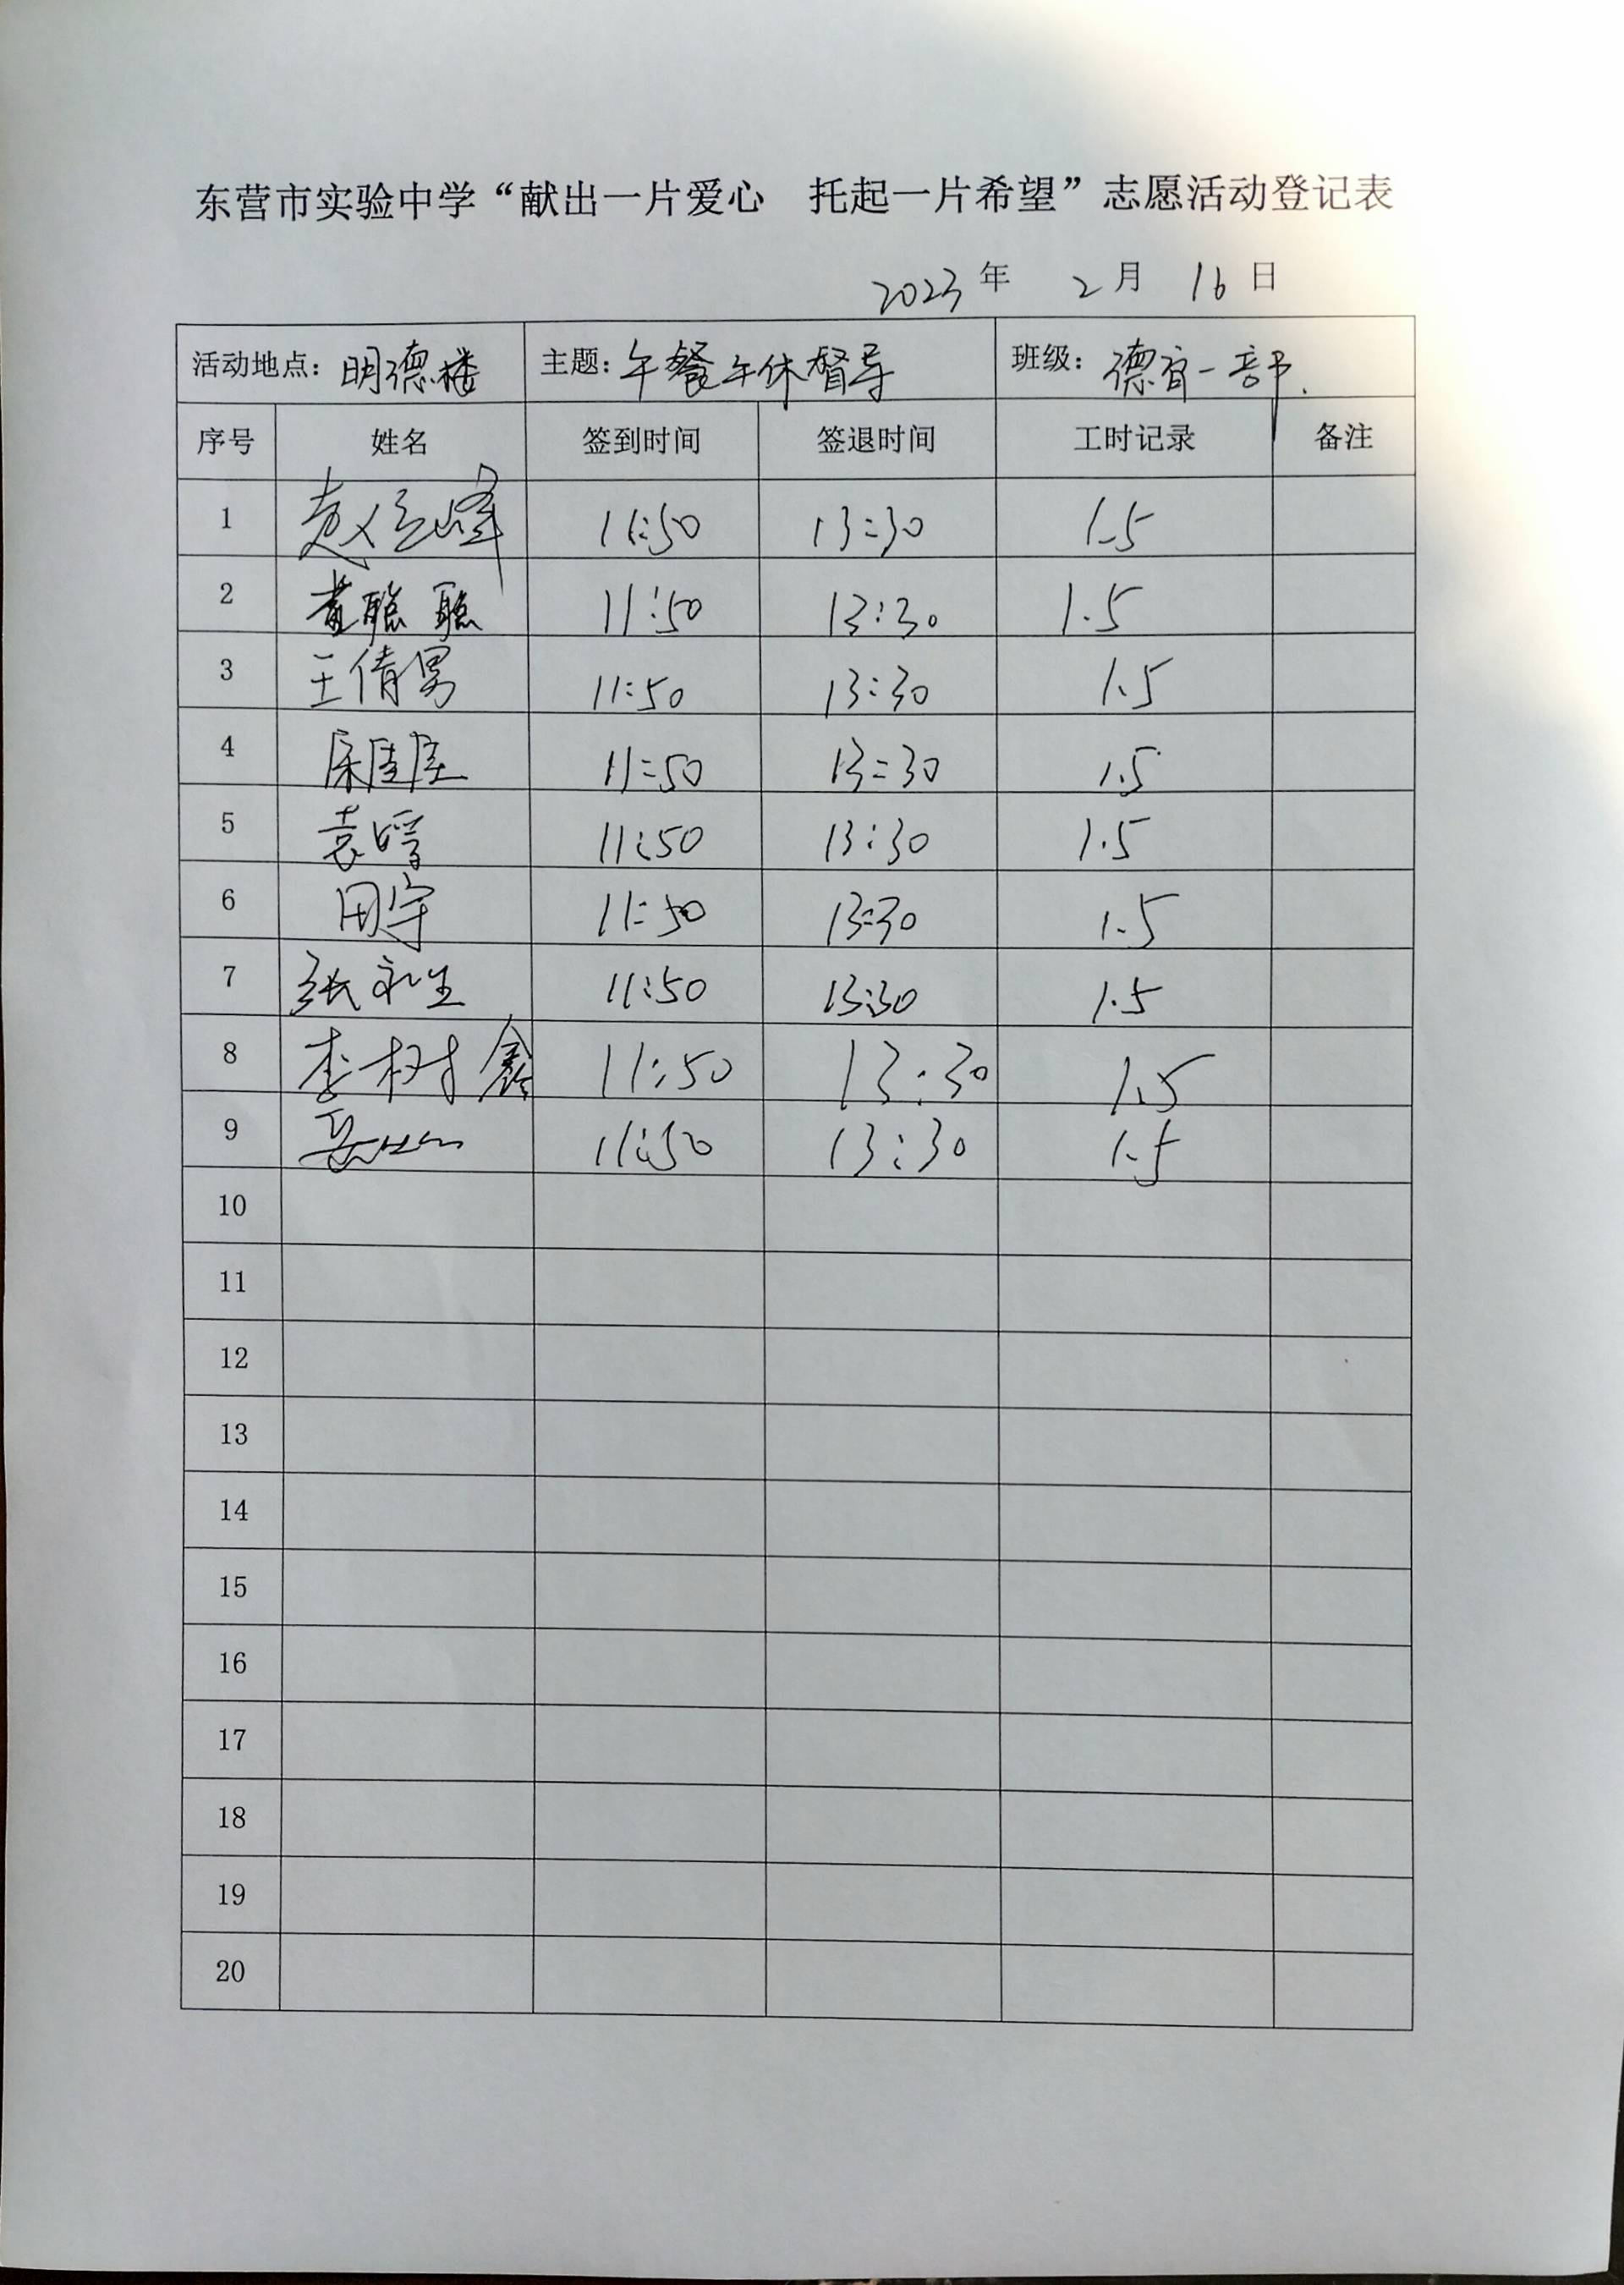 东营市实验中学“献出一片爱心 托起一片希望”志愿活动登记表
2023年 2月 16日
活动地点：明德楼 主题：午餐午休督导 班级：德育一部.
序号 姓名 签到时间 签退时间 工时记录 备注
1 赵 峰 11:50 13:30 1.5
2 黄聪聪 11:50 13:30 1.5
3 王倩男 11:50 13:30 1.5
4 11:50 13:30 1.5
5 袁 11:50 13:30 1.5
6 田宇 11:50 13:30 1.5
7 张永生 11:50 13:30 1.5
8 李树鑫 11:50 13:30 1.5
9 11:50 13:30 1.5
10
11
12
13
14
15
16
17
18
19
20